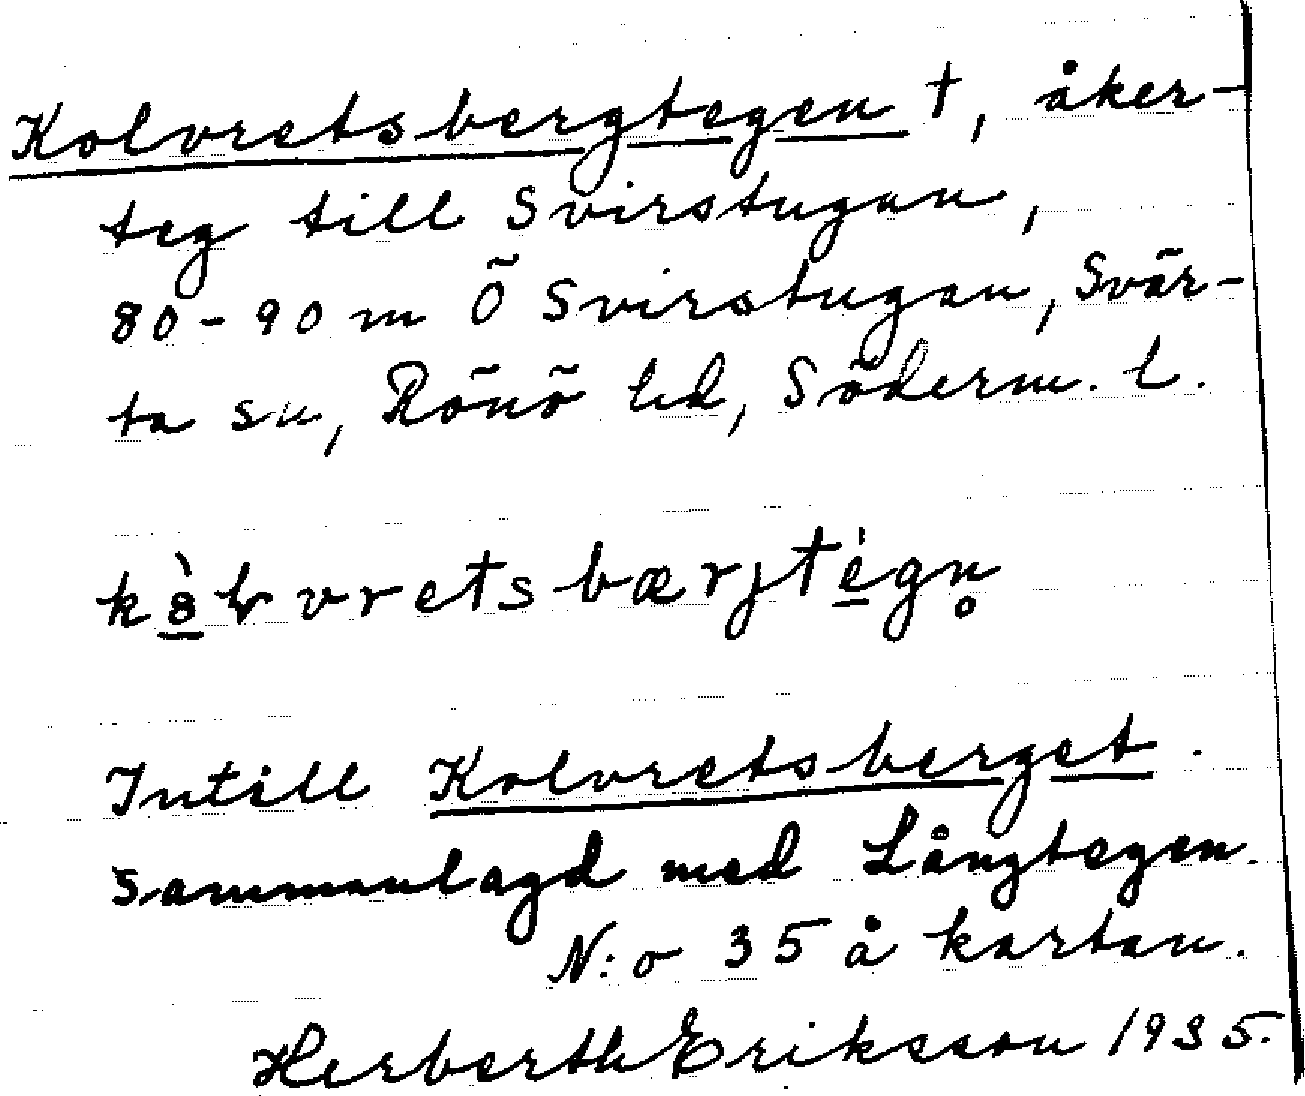 Kolvretsbergtegen †, åker-
teg till Svirstugan,
80-90 m Ö Svirstugan, Svär-
ta sn, Rönö hd, Söderm. l.
Intill Kolvretsberget.
Sammanlagd med Långtegen.
N:o 35 å kartan.
Herberth Eriksson 1935.